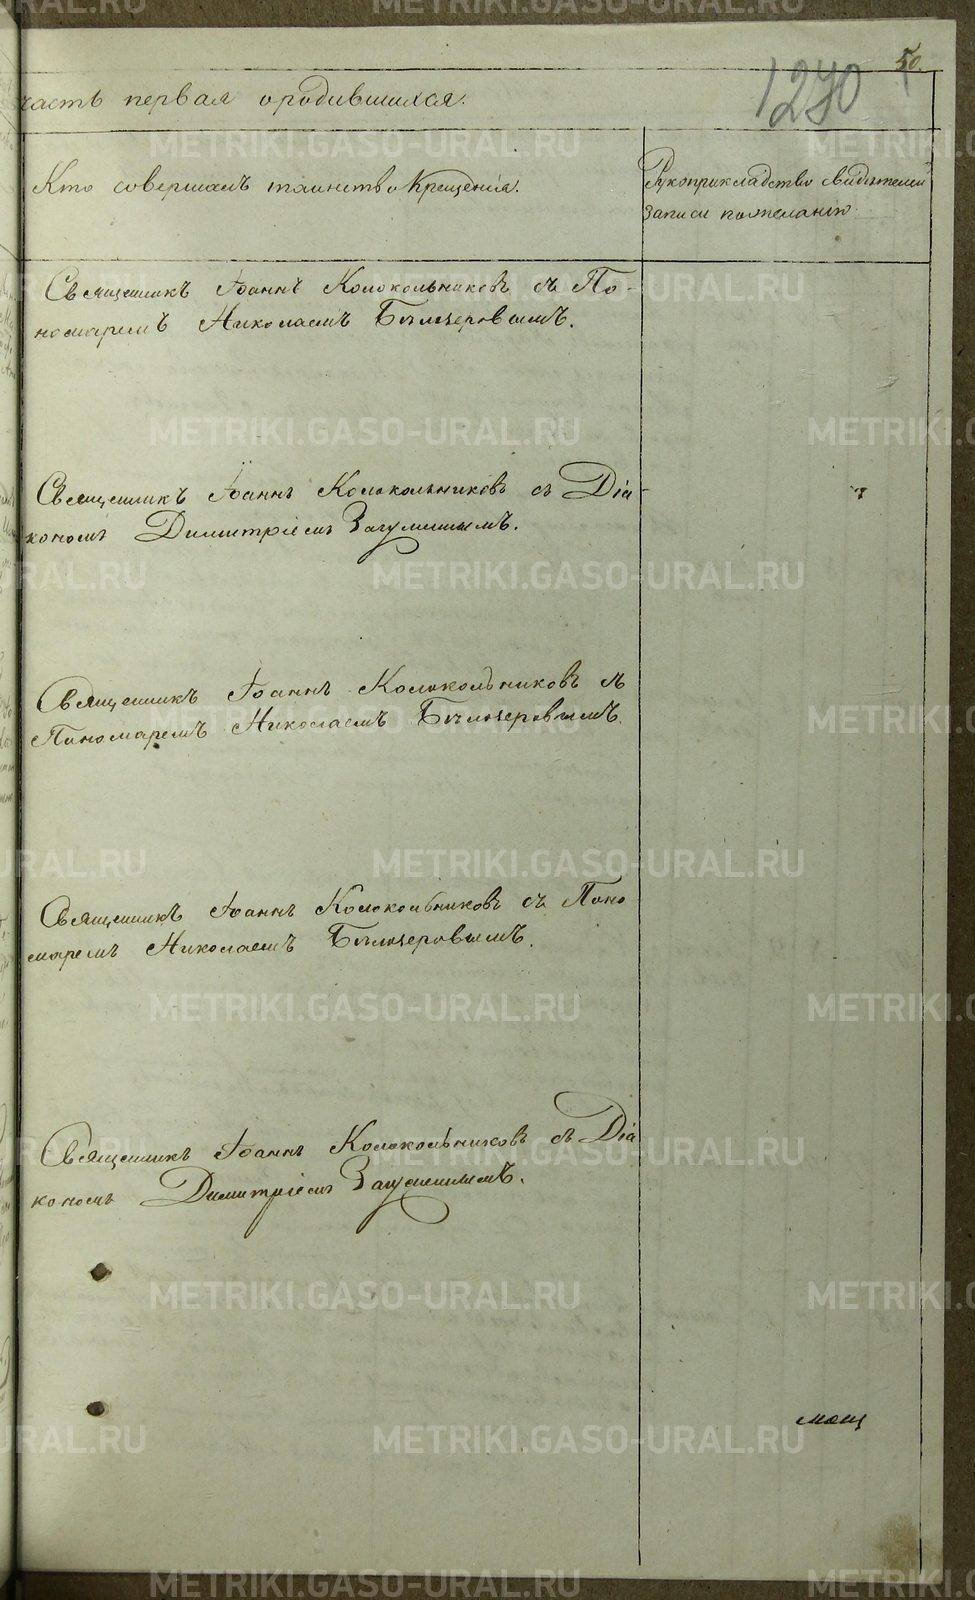 50.
1270
часть первая о родившихся.
Кто совершалъ таинство Крещенія.
Рукоприкладство свидѣтелей
записи по желанію
Священникъ Іоаннъ Колокольниковъ съ По-
номаремъ Николаемъ Бѣлозеровымъ.
Священникъ Іоаннъ Колокольниковъ съ Діа-
кономъ Димитріемъ
Священникъ Іоаннъ Колокольниковъ съ
Пономаремъ Николаемъ Бѣлозеровымъ.
Священникъ Іоаннъ Колокольниковъ съ Поно
маремъ Николаемъ Бѣлозеровымъ.
Священникъ Іоаннъ Колокольниковъ съ Діа
кономъ Димитріемъ
METRIKI.GASO-URAL.RU